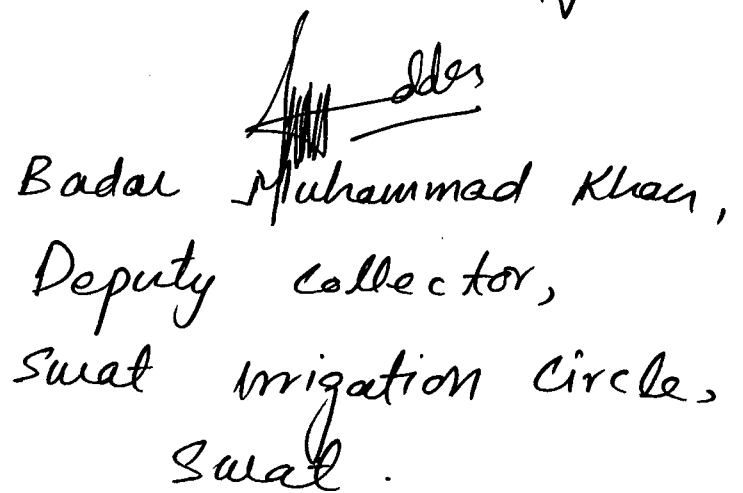 Badar Muhammad Khan,
Deputy Collector,
Swat irrigation Circle,
Swat.